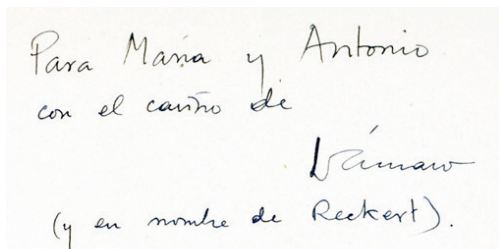 Para María y Antonio
con el cariño de
Dámaso
(y en nombre de Reckert).